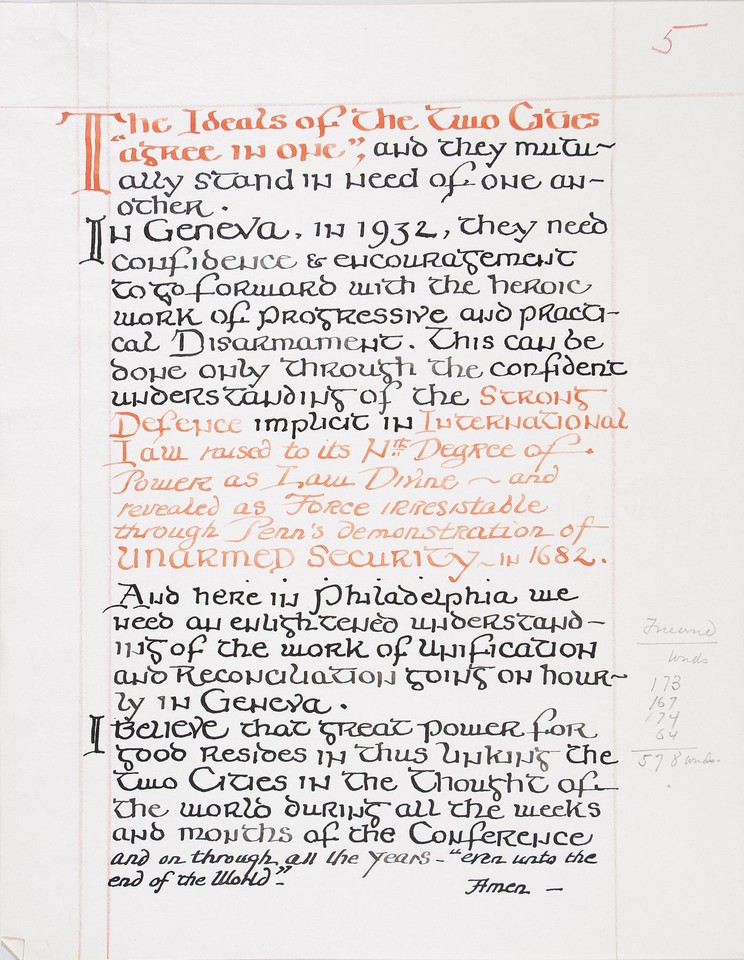 5
The Ideals of the Two Cities
"agree in one", and they mutu~
ally stand in need of one an-
other.
In Geneva, in 1932, they need
confidence & encouragement
to go forward with the heroic
work of progressive and practi-
cal Disarmament. This can be
done only through the confident
understanding of the Strong
Defence implicit in International
Law raised to its Nth Degree of
Power as Law Divine ~ and
revealed as Force irresistable
through Penn's demonstration of
Unarmed Security ~ in 1682.
And here in Philadelphia we
need an enlightened understand-
ing of the work of Unification
and Reconciliation going on hour~
ly in Geneva.
I believe that great power for
good resides in thus linking the
two Cities in the Thought of
the world during all the weeks
and months of the Conference
and on through all the years - "even unto the
end of the World".
Amen -
words
173
167
174
64
578 words.